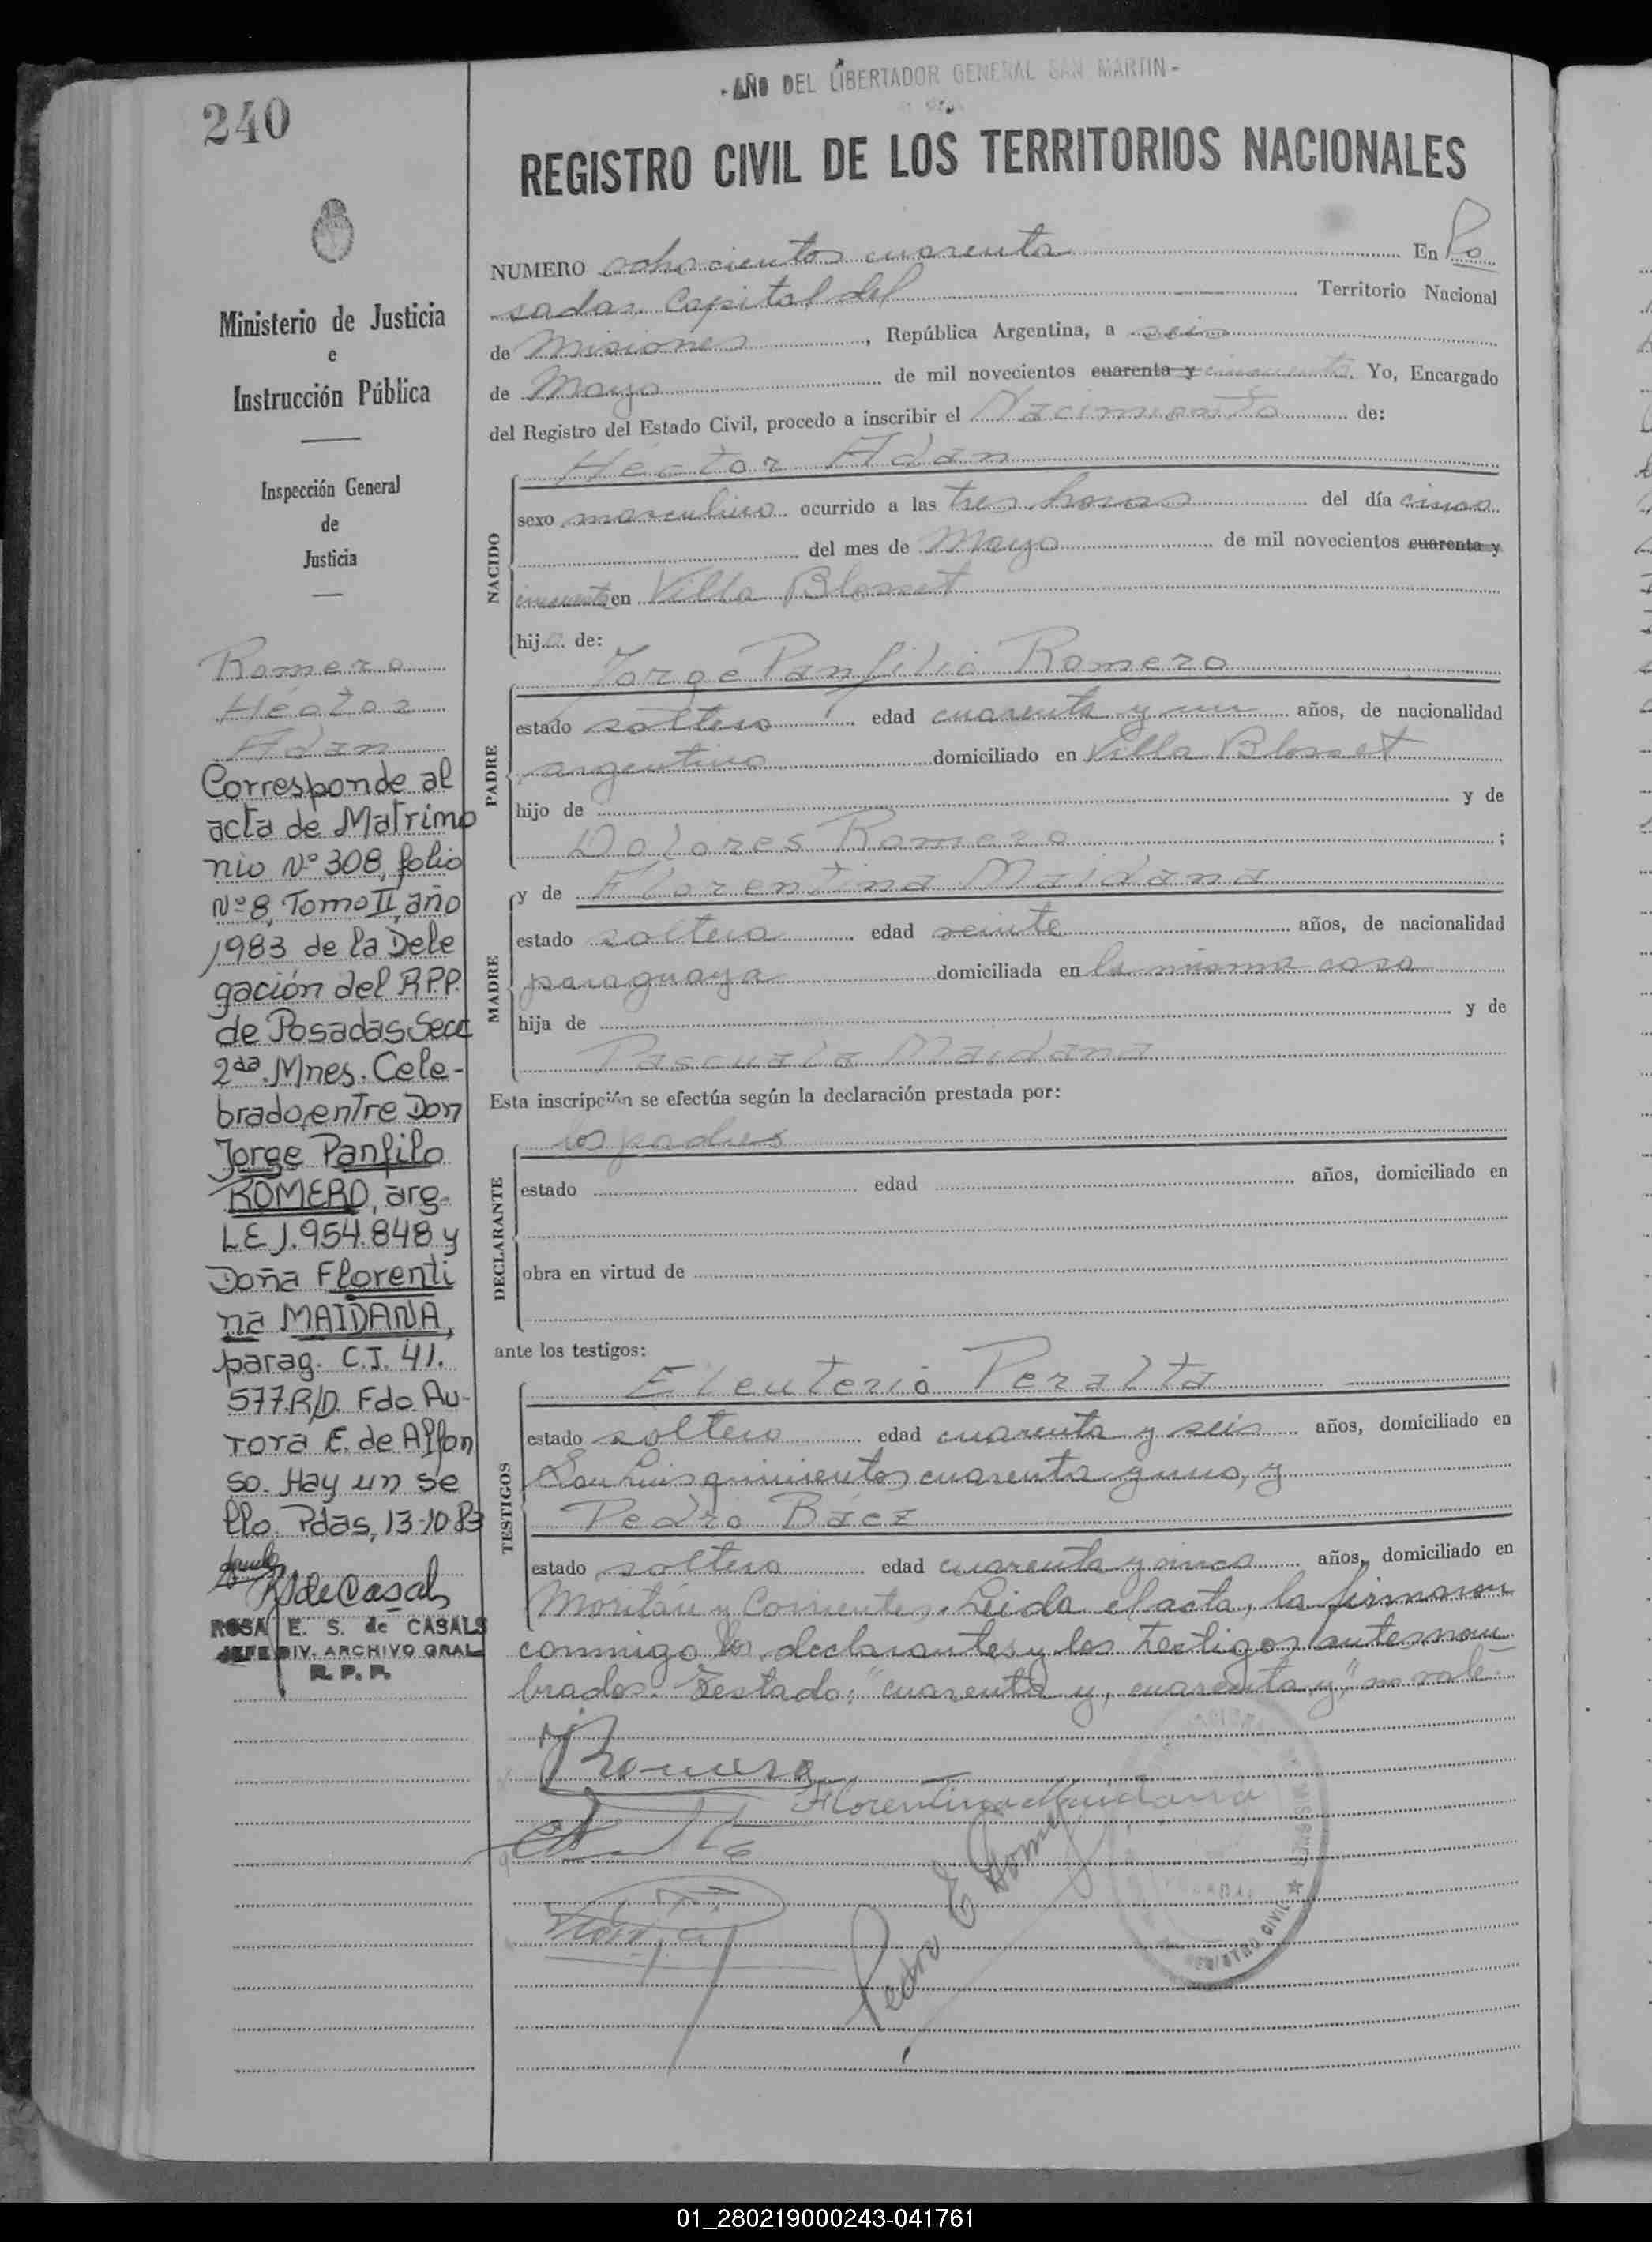 240
- AÑO DEL LIBERTADOR GENERAL SAN MARTIN -
REGISTRO CIVIL DE LOS TERRITORIOS NACIONALES
Ministerio de Justicia
e
Instrucción Pública
Inspección General
de
Justicia
Romero
Héctor
Adán
Corresponde al
acta de Matrimo
nio Nº 308, folio
Nº 8, Tomo II, año
1983 de la Dele
gación del R.P.P.
de Posadas Secc
2da. Mnes. Cele-
brado, entre Don
Jorge Panfilo
ROMERO, arg.
L.E 1.954.848 y
Doña Florenti
na MAIDANA,
parag. C.I. 41.
577.R/D. Fdo. Au-
rora E. de Alfon
so. Hay un se
llo. Pdas, 13-10-83
RSdeCasals
ROSA E. S. de CASALS
JEFE DIV. ARCHIVO GRAL
R. P. P.
NUMERO ochocientos cuarenta En Po
sadas, Capital del Territorio Nacional
de Misiones, República Argentina, a seis
de Mayo de mil novecientos cuarenta y cincuenta. Yo, Encargado
del Registro del Estado Civil, procedo a inscribir el Nacimiento de:
Héctor Adán
NACIDO
sexo masculino ocurrido a las tres horas del día cinco
del mes de Mayo de mil novecientos cuarenta y
cincuenta en Villa Blosset
hijo de:
Jorge Panfilio Romero
PADRE
estado soltero edad cuarenta y un años, de nacionalidad
argentino domiciliado en Villa Blosset
hijo de y de
Dolores Romero ;
y de Florentina Maidana
MADRE
estado soltera edad veinte años, de nacionalidad
paraguaya domiciliada en la misma casa
hija de y de
Pascuala Maidana
Esta inscripción se efectúa según la declaración prestada por:
los padres
DECLARANTE
estado edad años, domiciliado en
obra en virtud de
ante los testigos:
Eleuterio Peralta
TESTIGOS
estado soltero edad cuarenta y seis años, domiciliado en
San Luis quinientos cuarenta y uno, y
Pedro Báez
estado soltero edad cuarenta y cinco años, domiciliado en
Moritán y Corrientes. Leida el acta, la firmaron
conmigo los declarantes y los testigos antes nom
brados. Testado: "cuarenta y, cuarenta y," no vale.
JRomero
Florentina Maidana
Pedro E Gomez
REGISTRO CIVIL
MISIONES
01_280219000243-041761